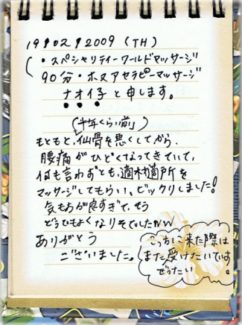 19・02・2009 (TH)
(・スペシャリティーワールドマッサージ
90分・ホヌアセラピーマッサージ
ナオイ子と申します。
(半年くらい前)
もともと、仙骨を悪くしてから
腰痛がひどくなってきていて、
何も言わずとも、適材箇所を
マッサージしてもらい、ビックリしました!
気もちが良すぎて、そう
どうでもよくなりそでしたww
ありがとう
ございました。
こっちに来た際は
また受けたいです。
ぜったい